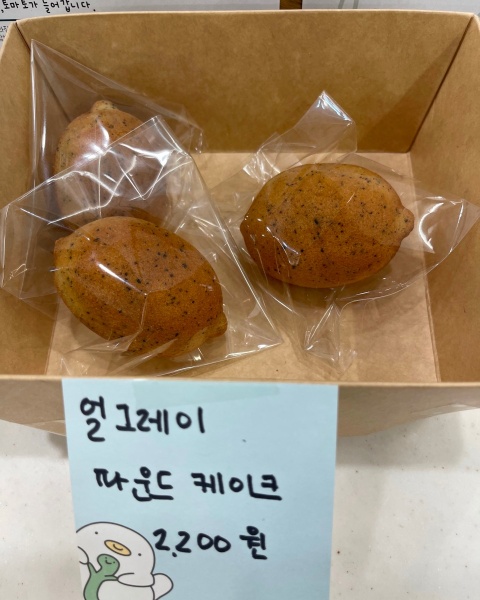 토마토가 들어갑니다.
얼그레이
파운드 케이크
2,200원